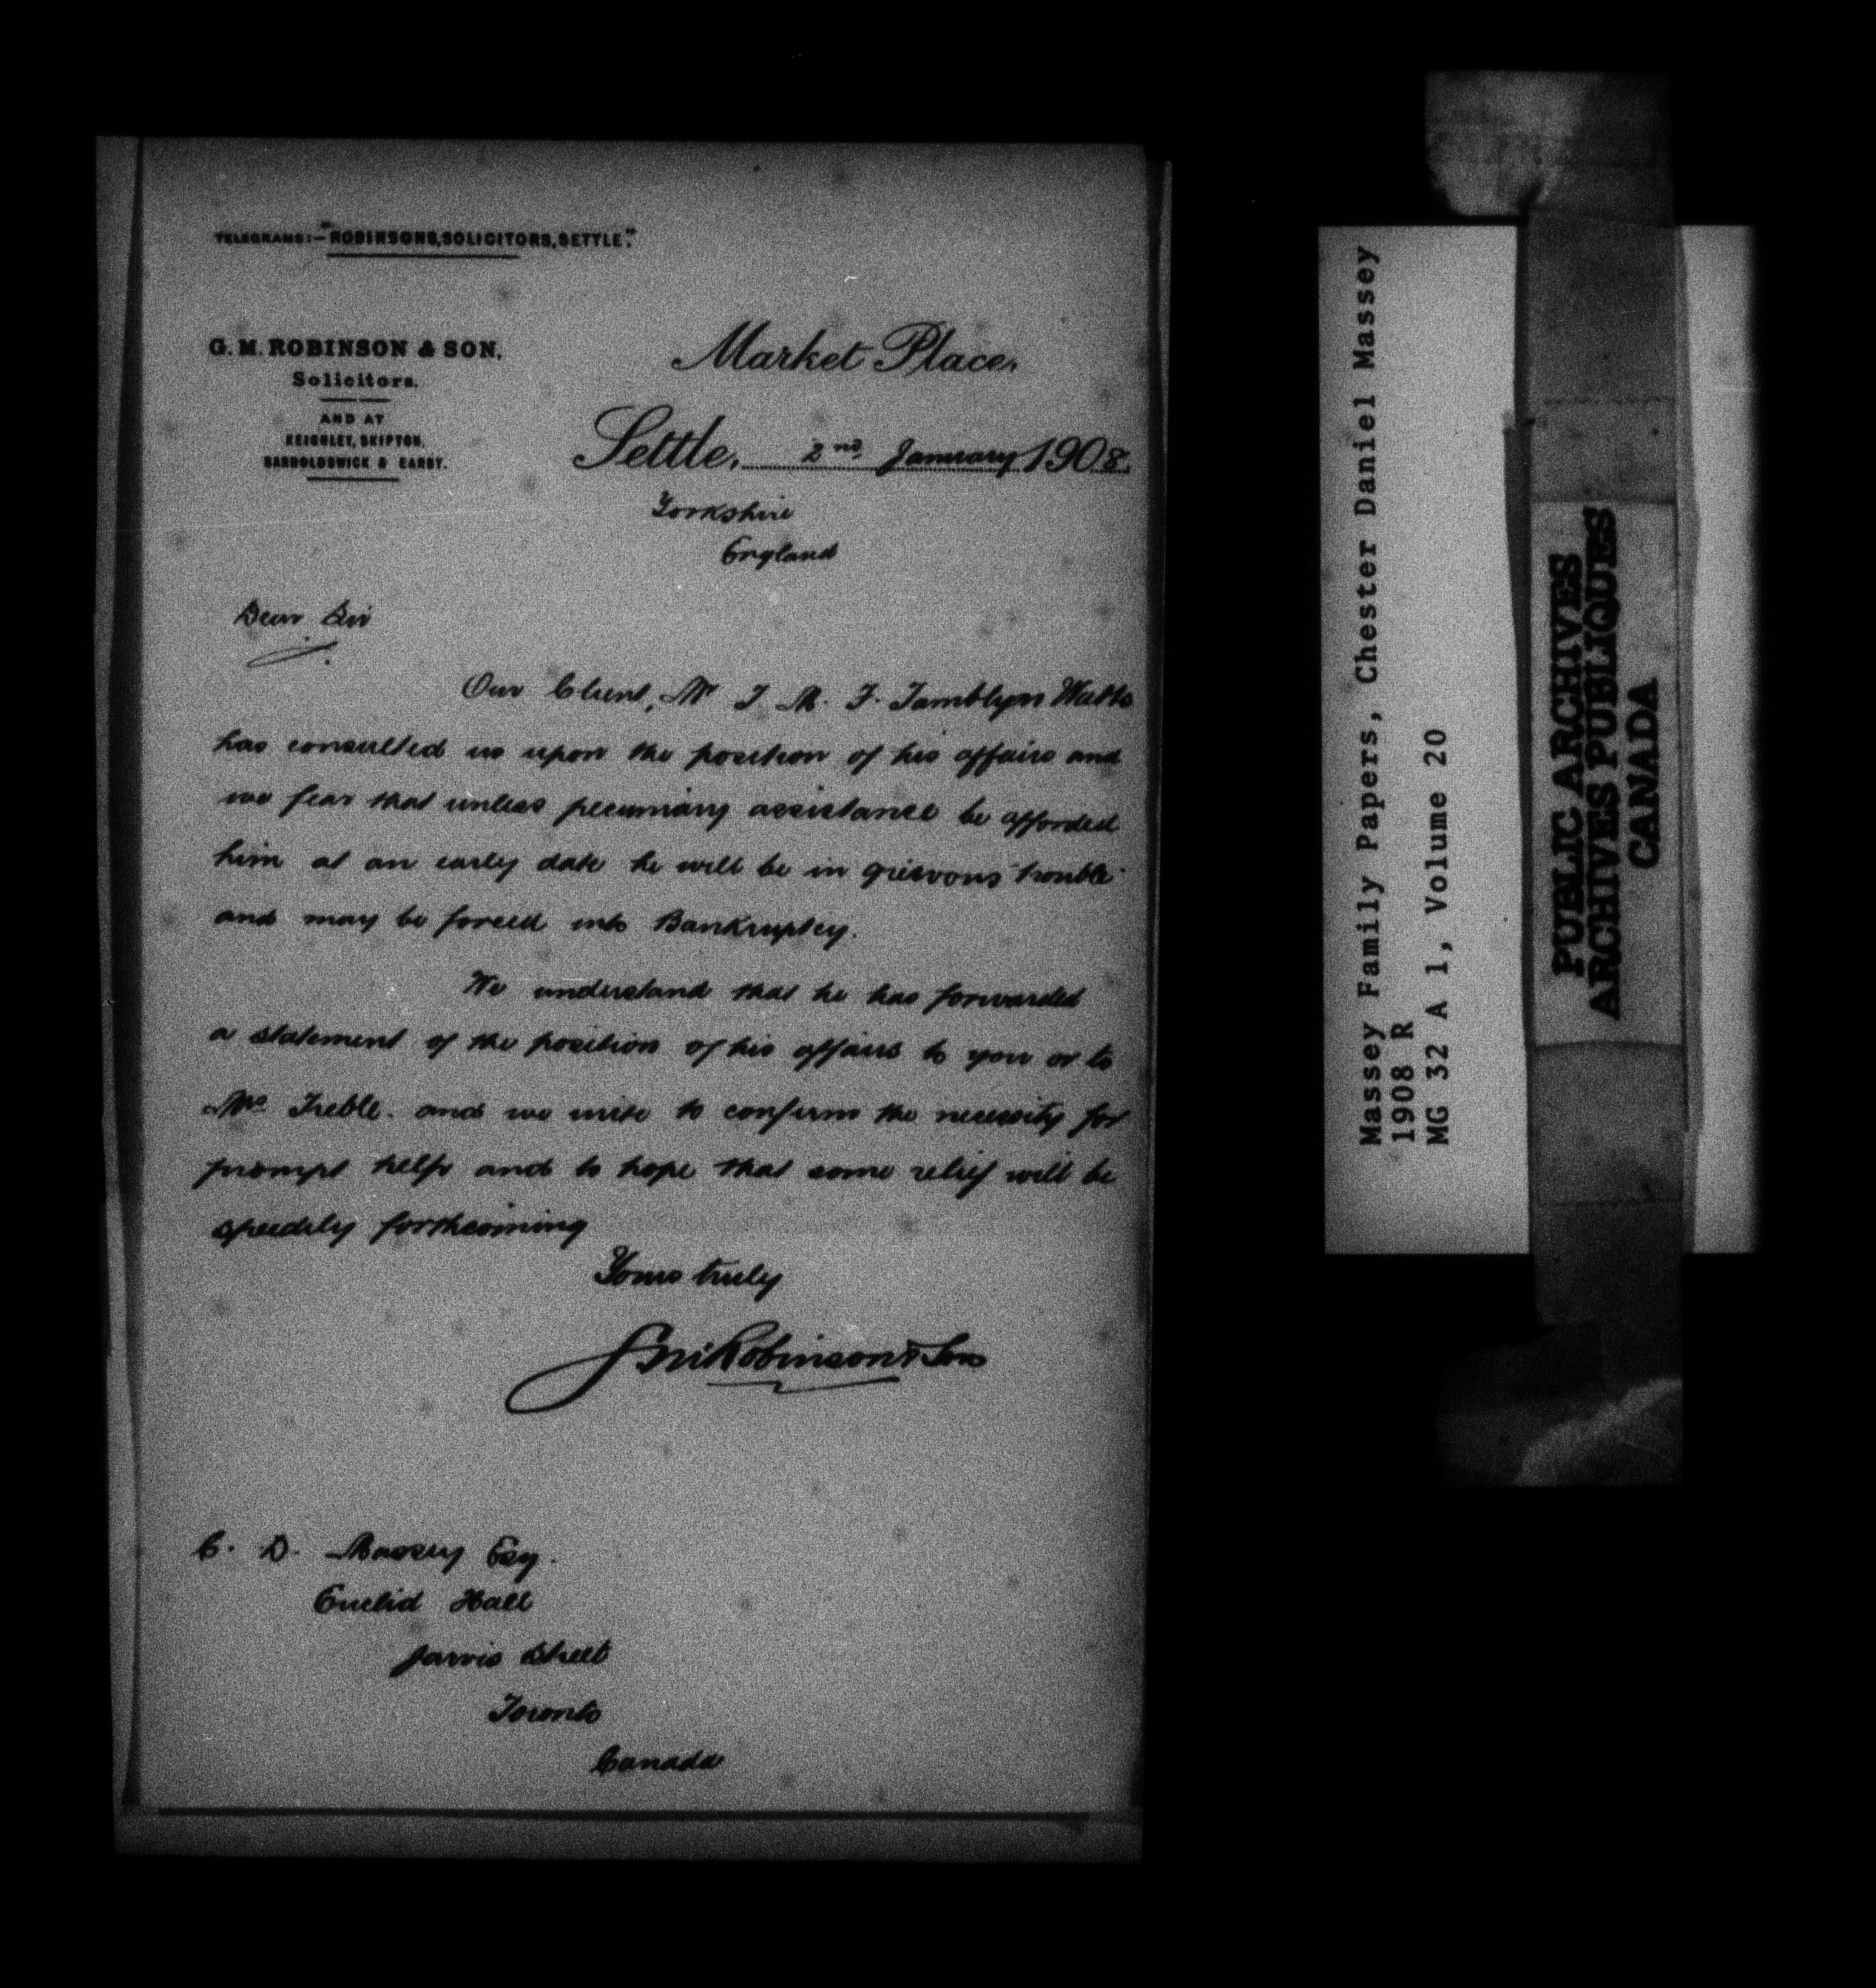 TELEGRAMS:- "ROBINSONS, SOLICITORS, SETTLE."
G. M. ROBINSON & SON,
Solicitors.
AND AT
KEIGHLEY, SKIPTON,
BARNOLDSWICK & EARBY.
Market Place,
Settle, 2nd January 1908.
Yorkshire
England
Dear Sir
Our Client, Mr T. M. F. Tamblyn Watts
has consulted us upon the position of his affairs and
we fear that unless pecuniary assistance be afforded
him at an early date he will be in grievous trouble
and may be forced into Bankruptcy.
We understand that he has forwarded
a statement of the position of his affairs to you or to
Mrs. Treble. and we write to confirm the necessity for
prompt help and to hope that some relief will be
speedily forthcoming
Yours truly
G M Robinson & Son
C. D. Massey Esq.
Euclid Hall
Jarvis Street
Toronto
Canada
Massey Family Papers, Chester Daniel Massey
1908 R
MG 32 A 1, Volume 20
PUBLIC ARCHIVES
ARCHIVES PUBLIQUES
CANADA